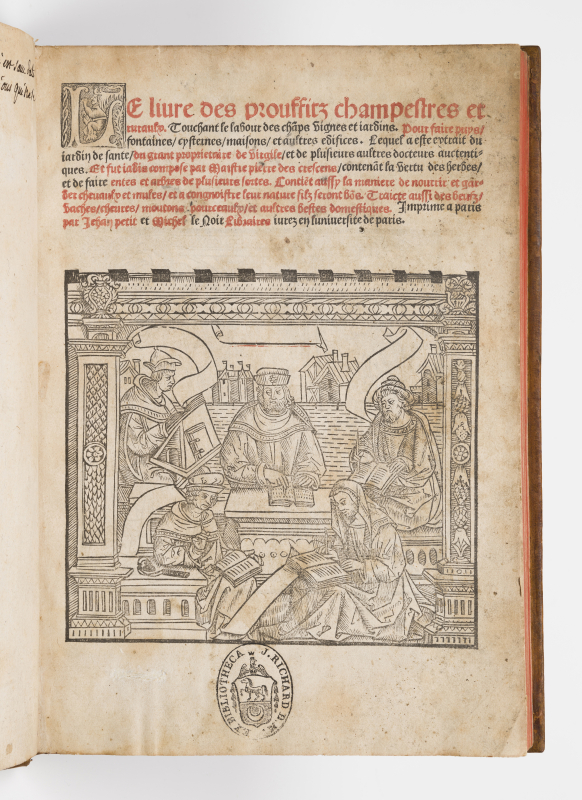 LE liure des prouffitz champestres et
ruraulx. Touchant le labour des chãps vignes et iardins. Pour faire puys/
fontaines/cysternes/maisons/et aultres edifices. Lequel a este extrait du
iardin de sante/du grant proprietaire de Virgile/et de plusieurs aultres docteurs auctenti-
ques. Et fut iadis compose par Maistre pierre des crescens/contenãt la vertu des herbes/
et de faire entes et arbres de plusieurs sortes. Contiẽt aussy la maniere de nourrir et gar-
der cheuaulx et mules/et a congnoistre leur nature silz seront bõs. Traicte aussi des beufz/
vaches/cheures/moutons/pourceaulx/et aultres bestes domestiques. Imprime a paris
par Jehan petit et Michel le Noir Libraires iurez en luniuersite de paris.
EX BIBLIOTHECA J. RICHARD D. M.